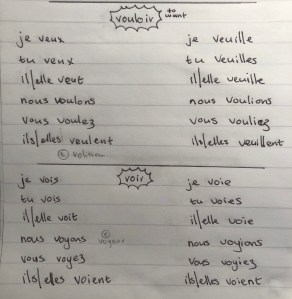 vouloir to want
je veux je veuille
tu veux tu veuilles
il/elle veut il/elle veuille
nous voulons nous voulions
vous voulez vous vouliez
ils/elles veulent ils/elles veuillent
volition
voir
je vois je voie
tu vois tu voies
il/elle voit il/elle voie
nous voyons nous voyions
vous voyez vous voyiez
ils/elles voient ils/elles voient